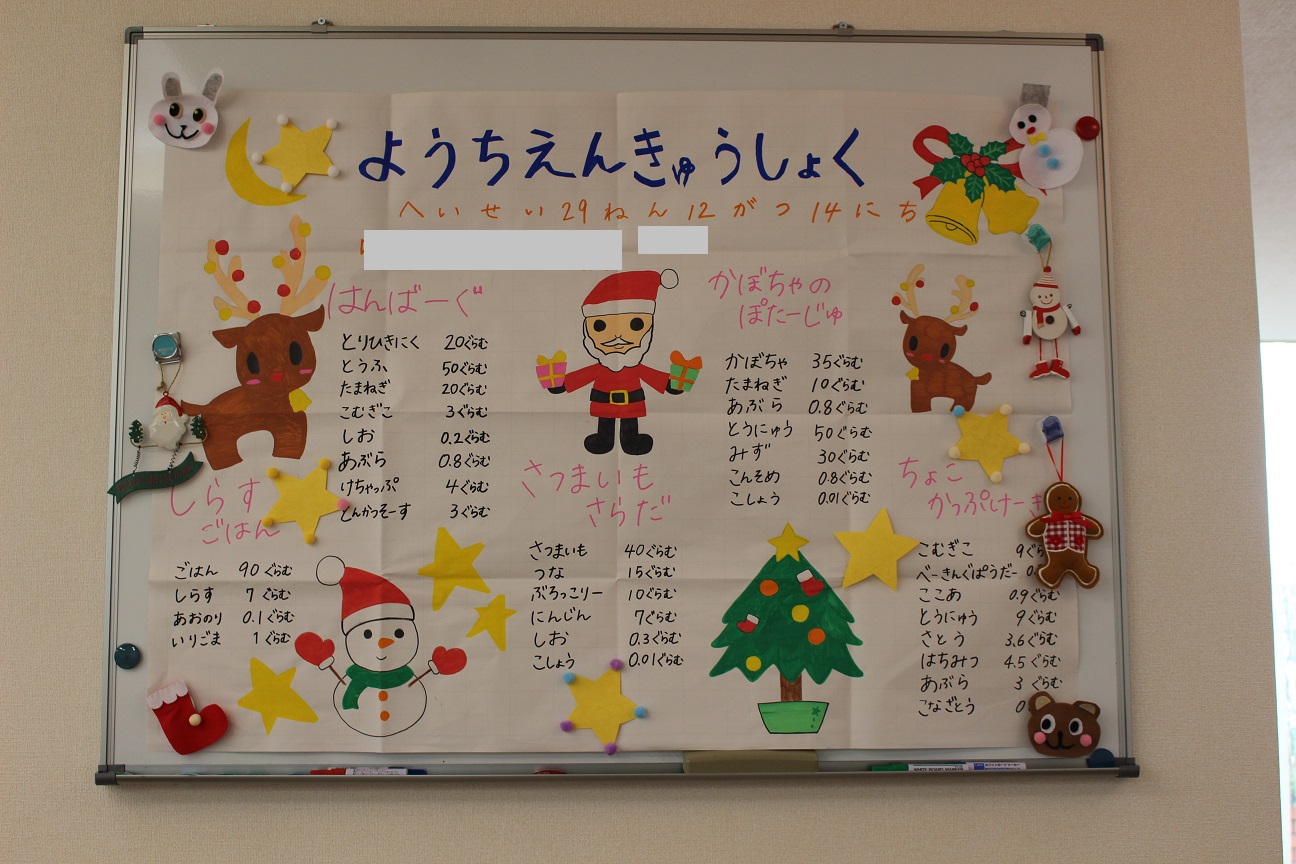 ようちえんきゅうしょく
へいせい29ねん12がつ14にち
はんばーぐ
とりひきにく 20ぐらむ
とうふ 50ぐらむ
たまねぎ 20ぐらむ
こむぎこ 3ぐらむ
しお 0.2ぐらむ
あぶら 0.8ぐらむ
けちゃっぷ 4ぐらむ
とんかつそーす 3ぐらむ
かぼちゃの
ぽたーじゅ
かぼちゃ 35ぐらむ
たまねぎ 10ぐらむ
あぶら 0.8ぐらむ
とうにゅう 50ぐらむ
みず 30ぐらむ
こんそめ 0.8ぐらむ
こしょう 0.01ぐらむ
しらす
ごはん
ごはん 90ぐらむ
しらす 7ぐらむ
あおのり 0.1ぐらむ
いりごま 1ぐらむ
さつまいも
さらだ
さつまいも 40ぐらむ
つな 15ぐらむ
ぶろっこりー 10ぐらむ
にんじん 7ぐらむ
しお 0.3ぐらむ
こしょう 0.01ぐらむ
ちょこ
かっぷけーき
こむぎこ 9ぐらむ
べーきんぐぱうだー
ここあ 0.9ぐらむ
とうにゅう 9ぐらむ
さとう 3.6ぐらむ
はちみつ 4.5ぐらむ
あぶら 3ぐらむ
こなざとう